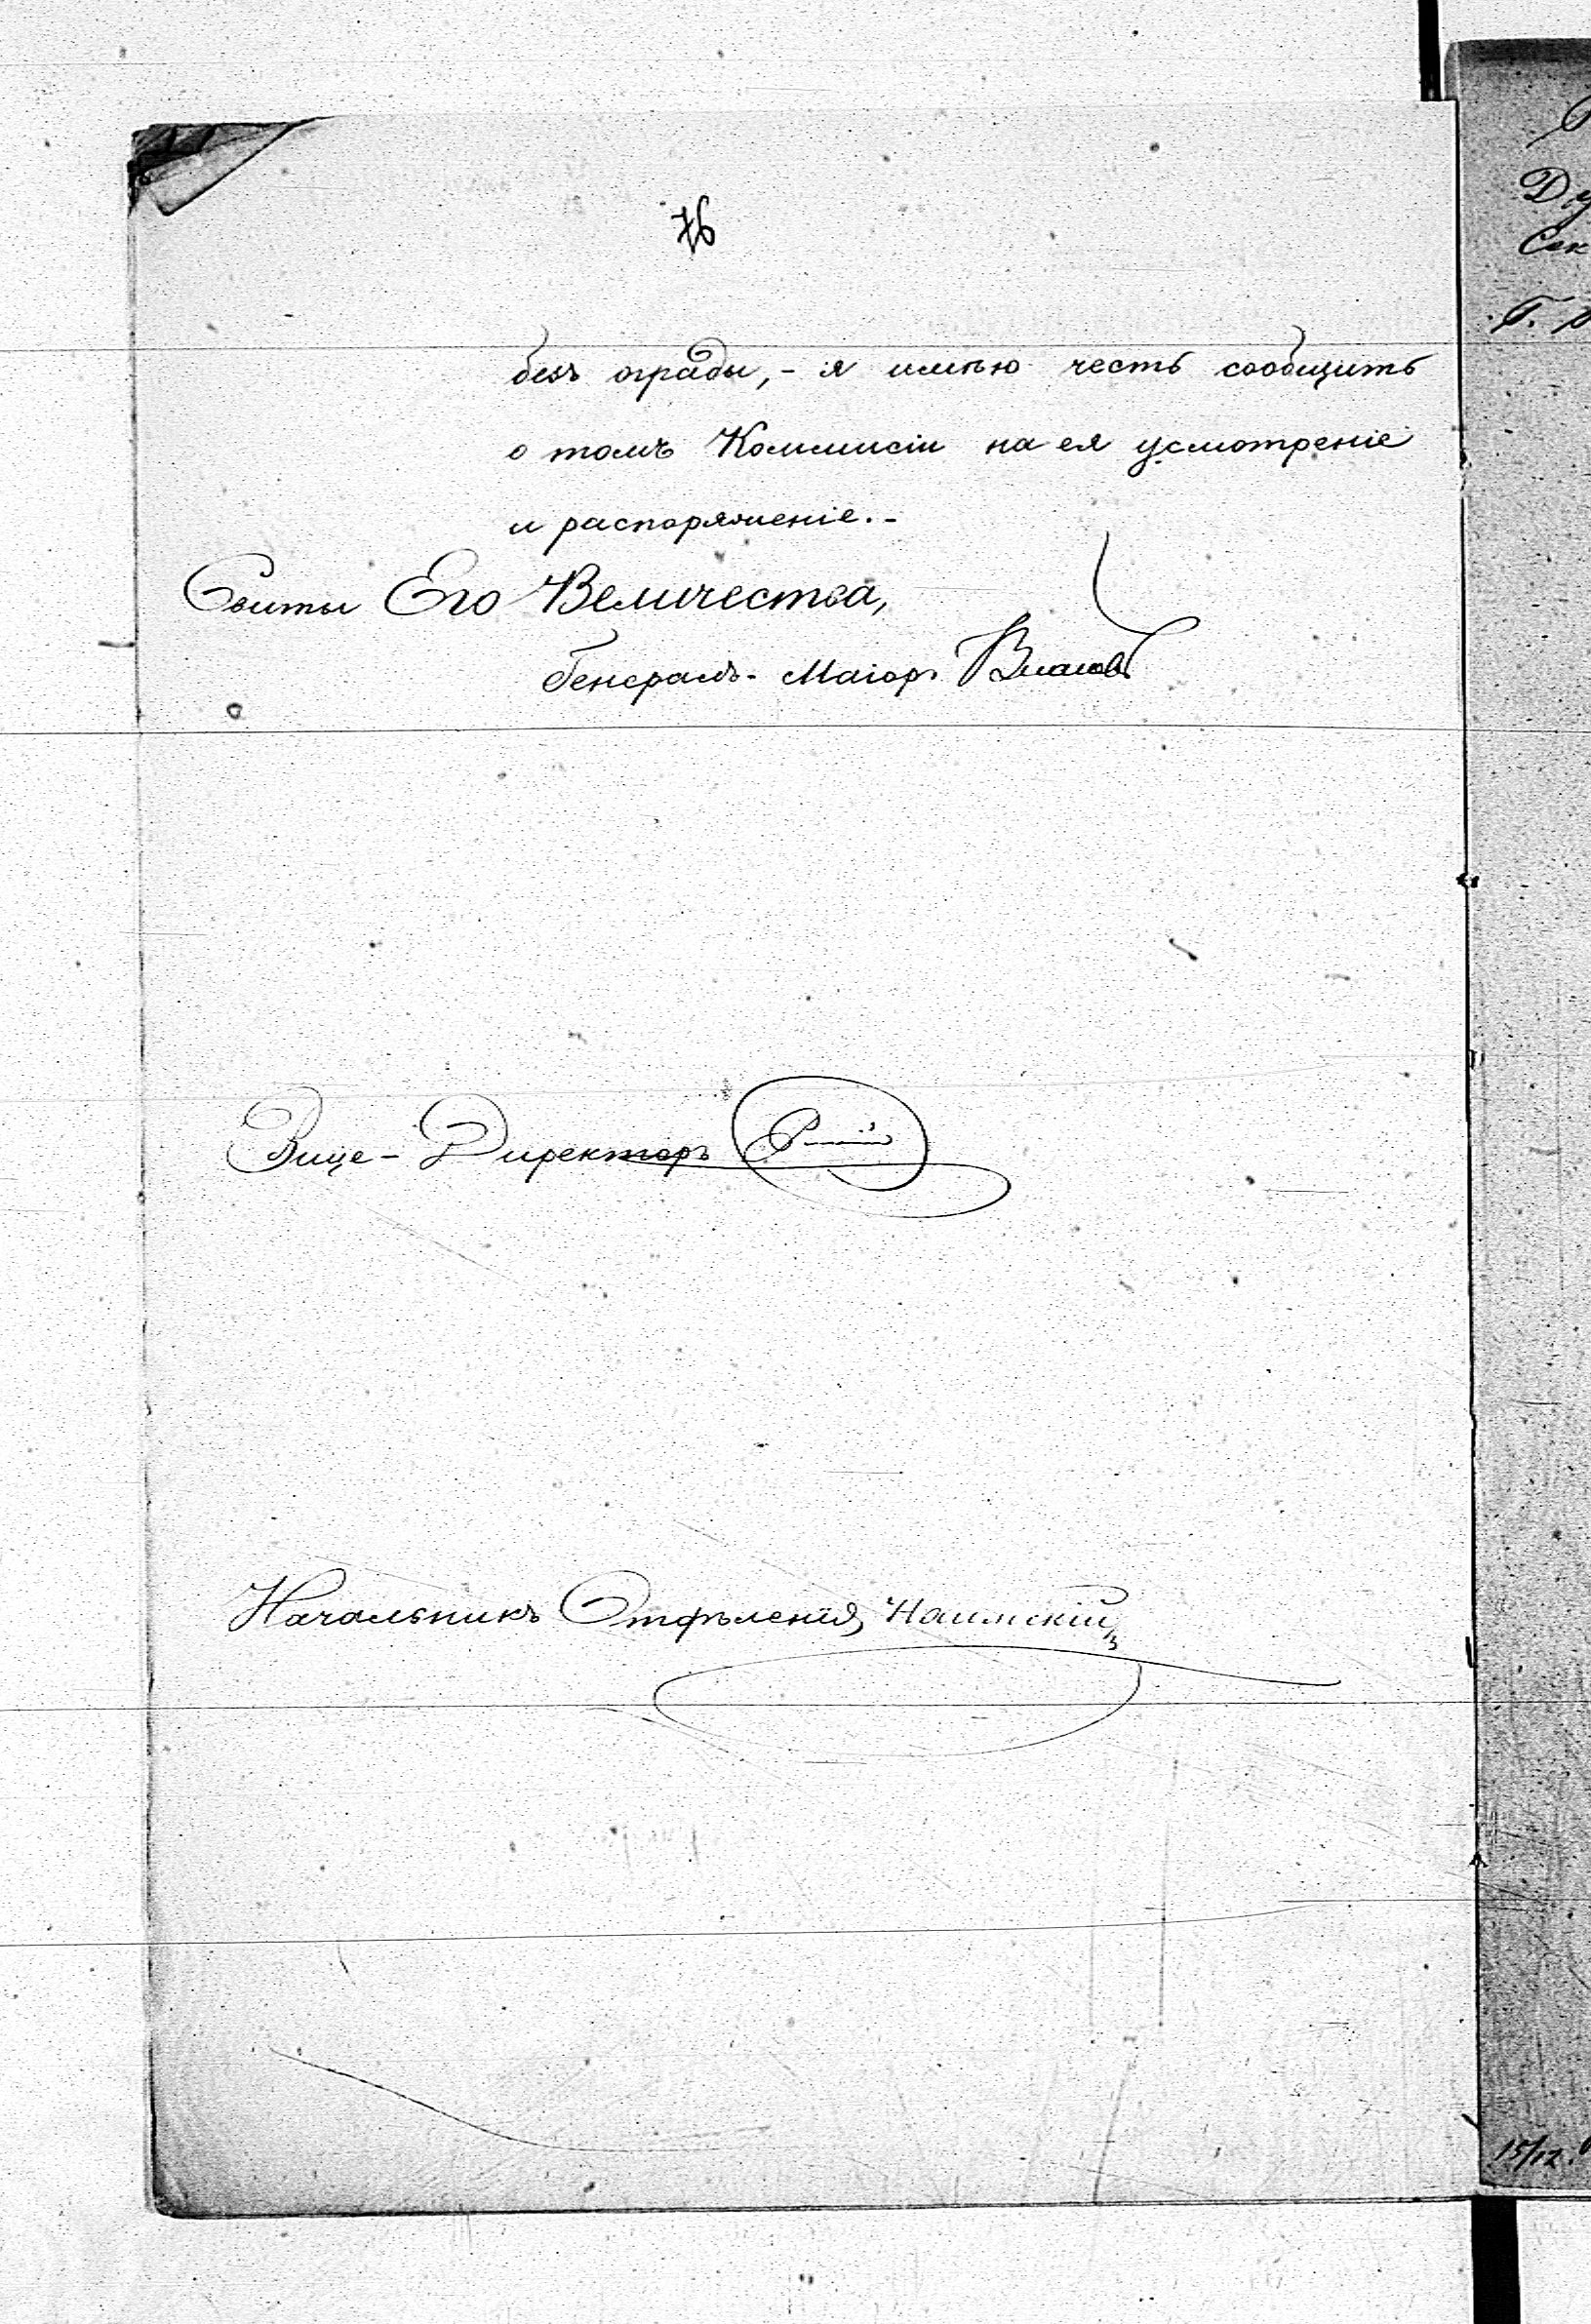 76
безъ ограды,- я имѣю честь сообщить
о томъ Коммисіи на ея усмотреніе
и распоряженіе.-
Свиты Его Величества,
Генералъ-Маіоръ
Вице-Директоръ
Начальникъ Отдѣленія
Ду
Сек
Г.
15/12.